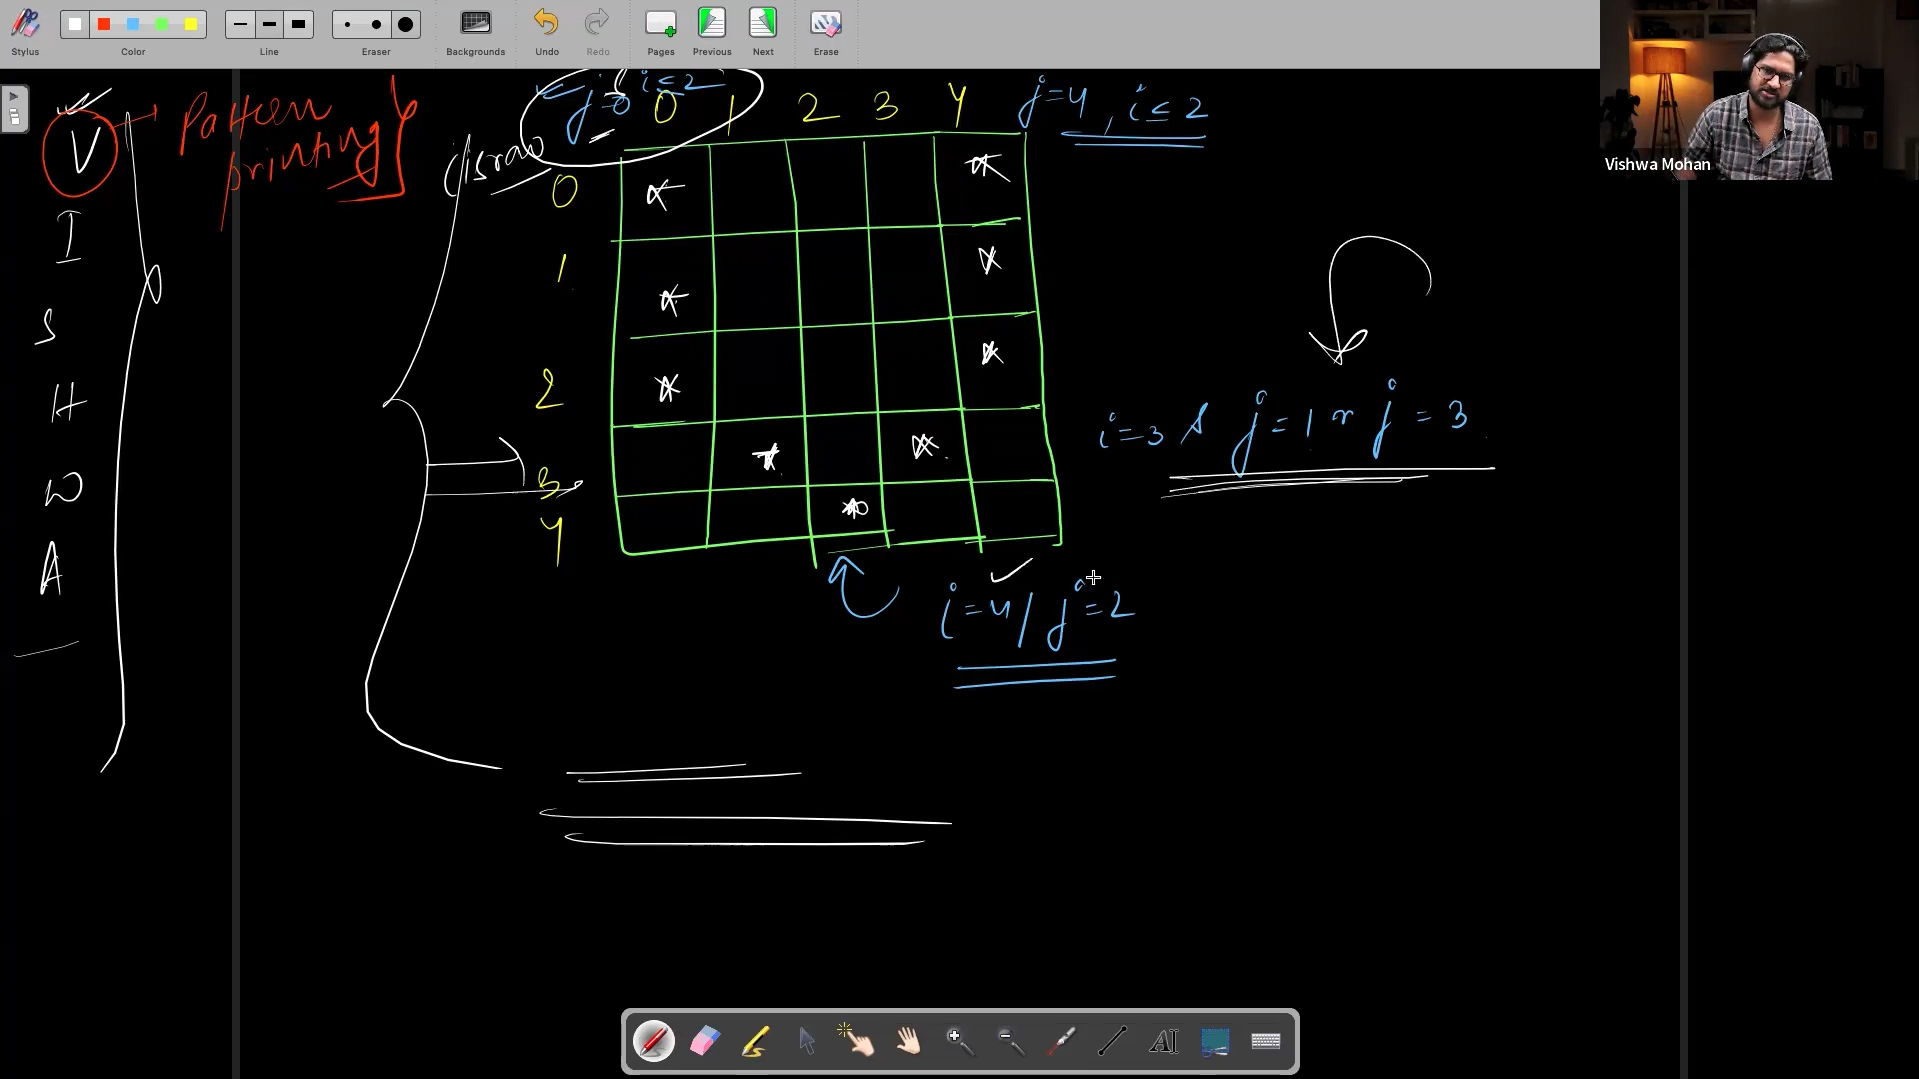 Stylus
Color
Line
Eraser
Backgrounds
Undo
Redo
Pages
Previous
Next
Erase
Vishwa Mohan
V
I
S
H
W
A
Pattern
printing
j=0 i≤2
0 1 2 3 4
j=4, i≤2
0
1
2
3
4
i=3 & j=1 or j=3
i=4, j=2
AI